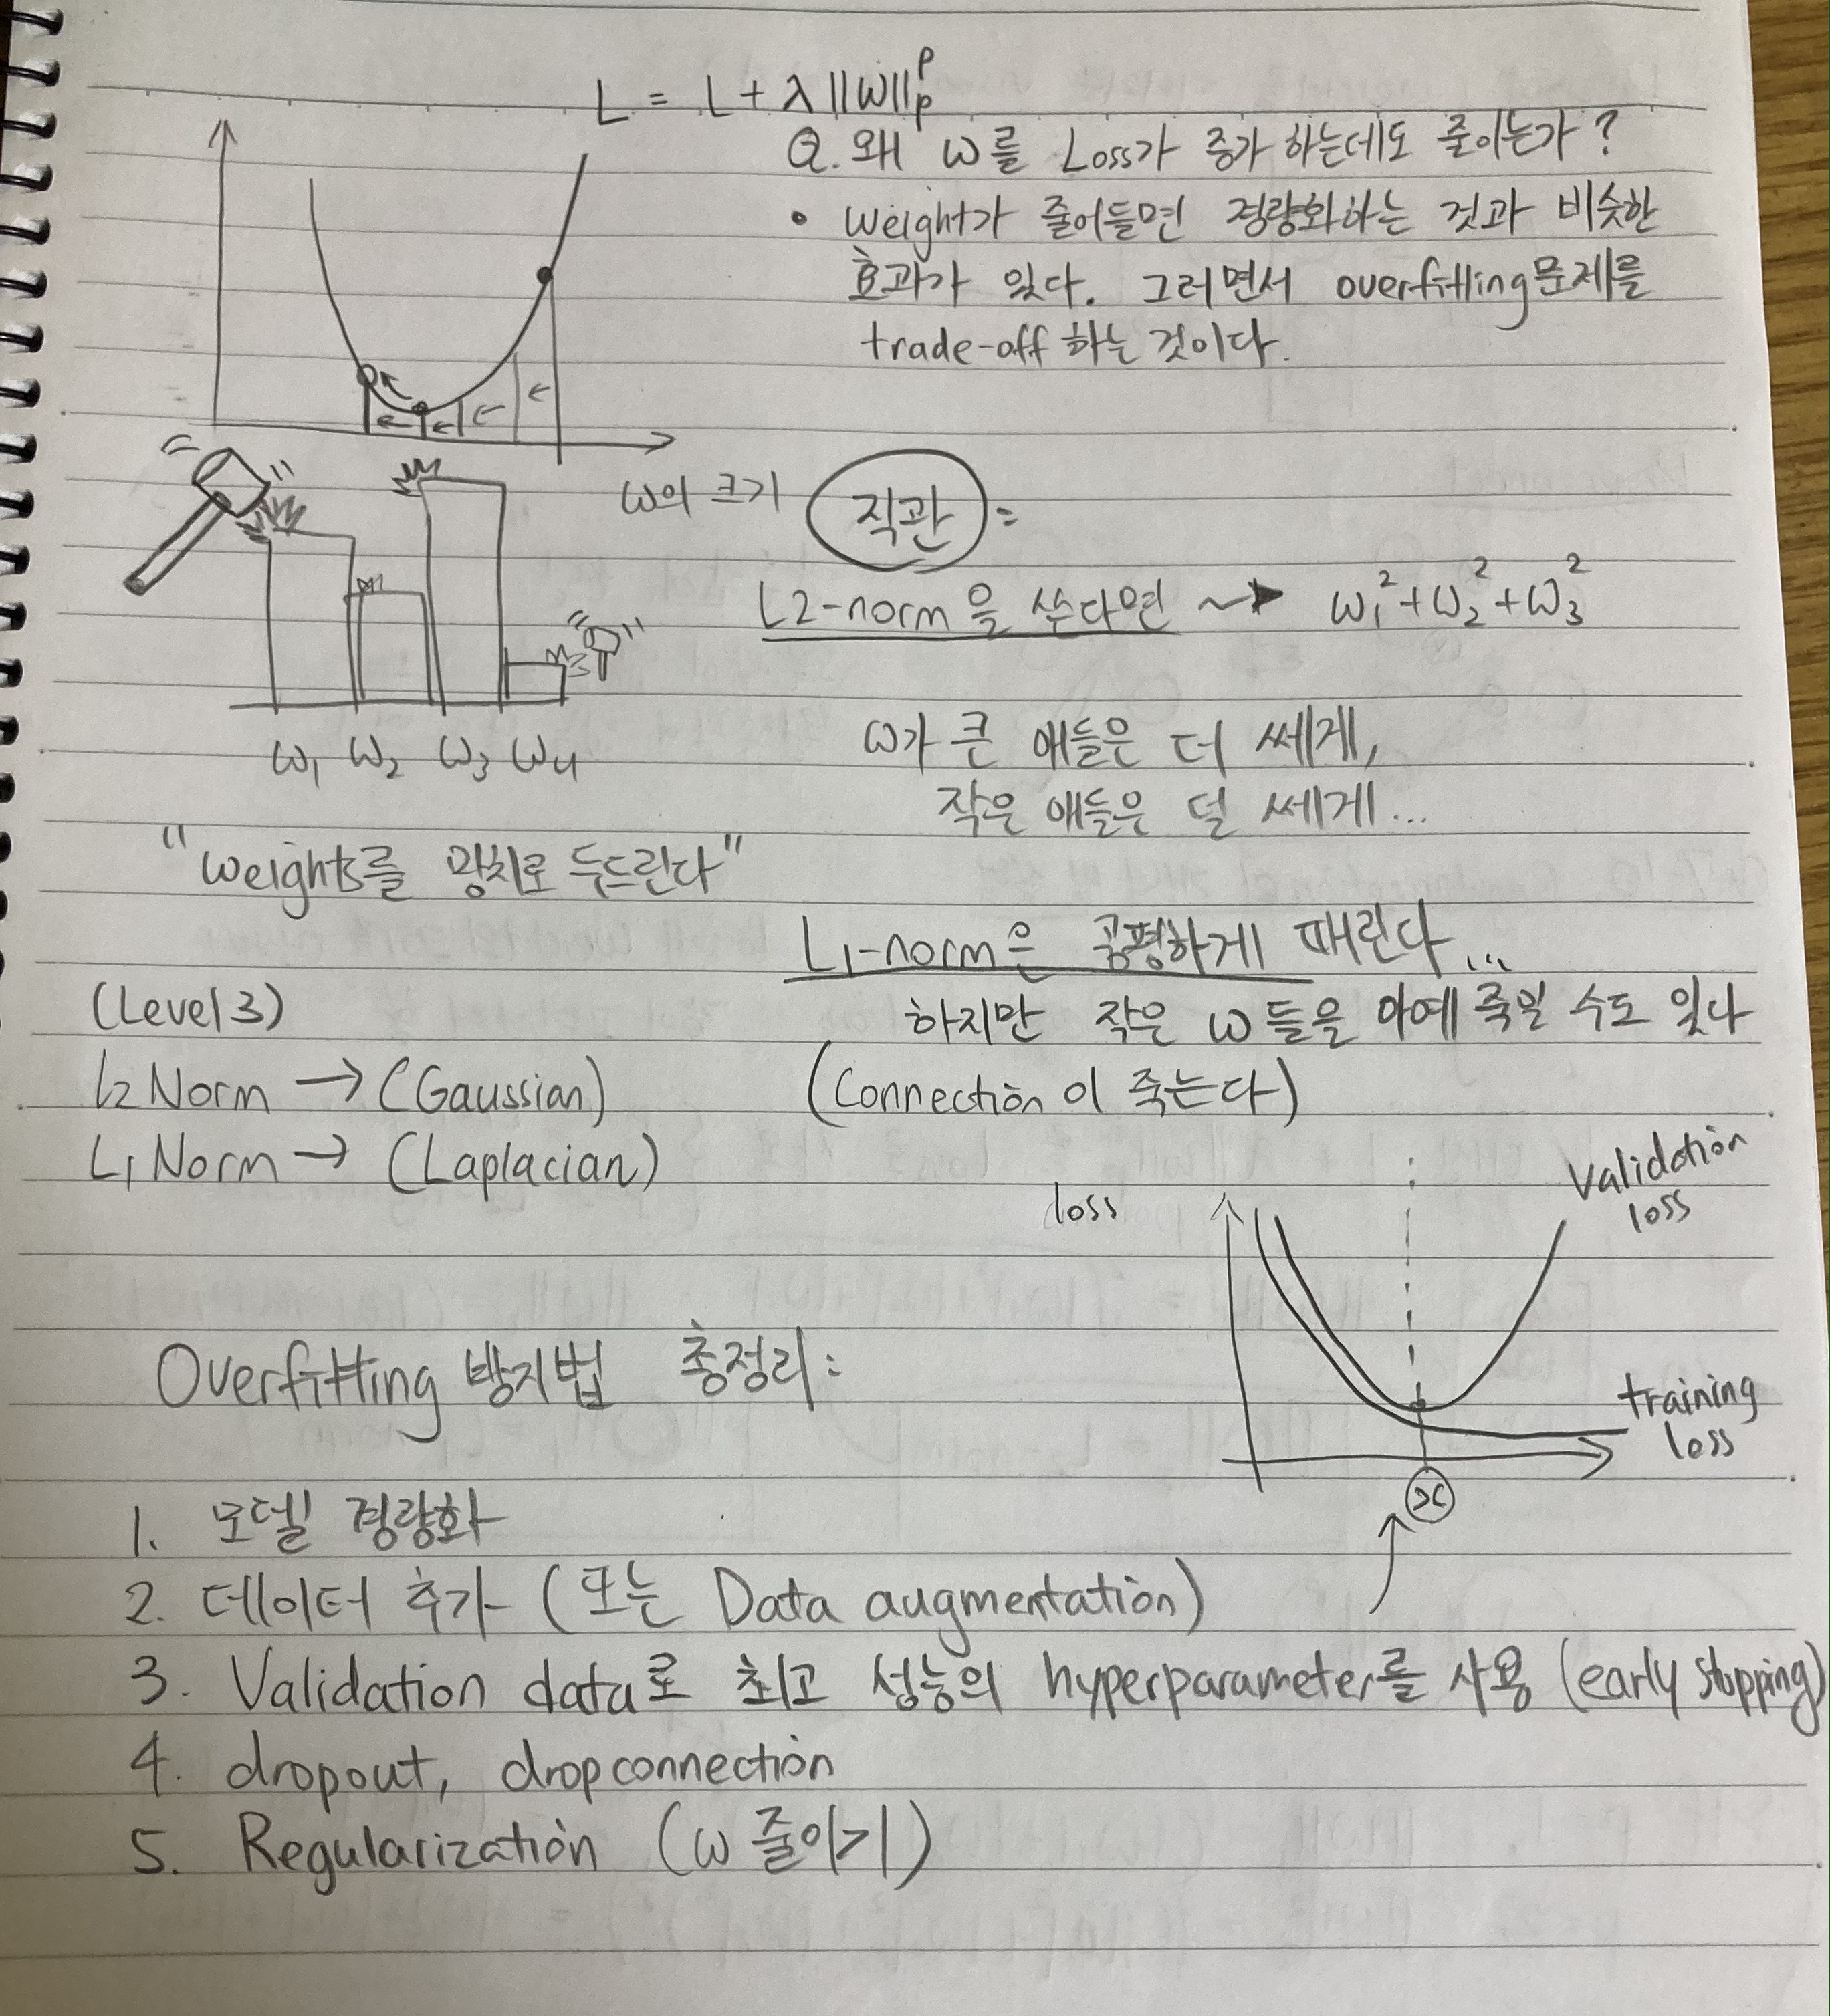 L = L + λ||ω||ₚᵖ
Q. 왜 ω를 Loss가 증가 하는데도 줄이는가?
• Weight가 줄어들면 경량화하는 것과 비슷한
효과가 있다. 그러면서 overfitting문제를
trade-off 하는 것이다.
ω의 크기
직관 :
L2-norm을 쓴다면 ⇝ ω₁² + ω₂² + ω₃²
ω₁ ω₂ ω₃ ω₄
ω가 큰 애들은 더 쎄게,
작은 애들은 덜 쎄게...
"Weights를 망치로 두드린다"
L₁-norm은 공평하게 때린다...
하지만 작은 ω들을 아예 죽일 수도 있다
(Connection이 죽는다)
(Level 3)
L2 Norm → (Gaussian)
L₁ Norm → (Laplacian)
loss
Validation
loss
training
loss
x
Overfitting 방지법 총정리:
1. 모델 경량화
2. 데이터 추가 (또는 Data augmentation)
3. Validation data로 최고 성능의 hyperparameter를 사용 (early stopping)
4. dropout, dropconnection
5. Regularization (ω 줄이기)